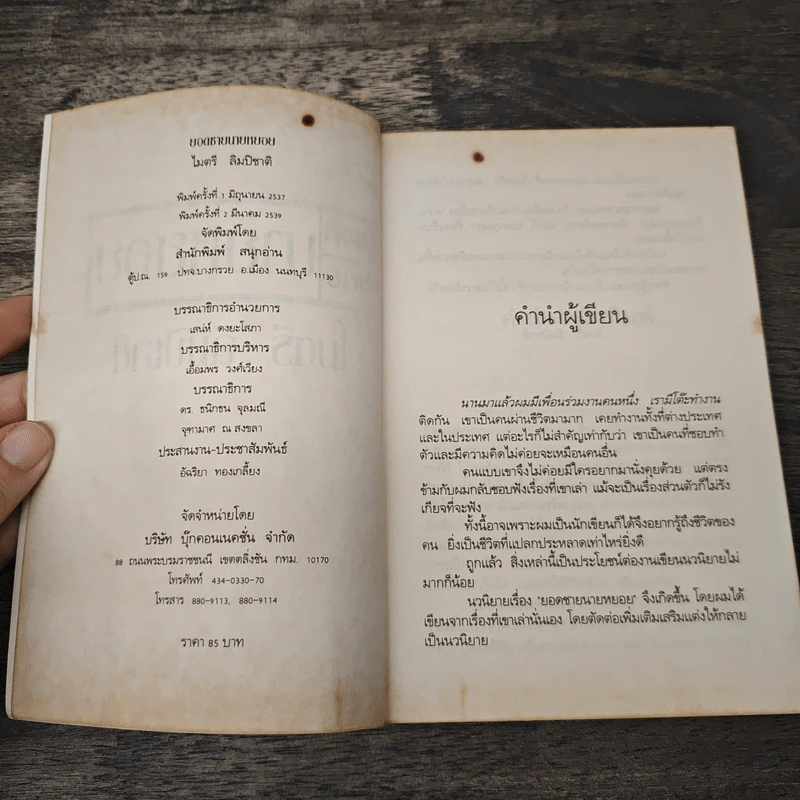 ยอดชายนายหยอย
ไมตรี ลิมปิชาติ
พิมพ์ครั้งที่ 1 มิถุนายน 2537
พิมพ์ครั้งที่ 2 มีนาคม 2539
จัดพิมพ์โดย
สำนักพิมพ์ สนุกอ่าน
ตู้ป.ณ. 159 ปทจ.บางกรวย อ.เมือง นนทบุรี 11130
บรรณาธิการอำนวยการ
เสน่ห์ ดงยะโสภา
บรรณาธิการบริหาร
เอื้อมพร วงศ์เวียง
บรรณาธิการ
ดร. ธนิกธน จุลมณี
จุฑามาศ ณ สงขลา
ประสานงาน-ประชาสัมพันธ์
อัฉริยา ทองเกลี้ยง
จัดจำหน่ายโดย
บริษัท บุ๊กคอนเนคชั่น จำกัด
88 ถนนพระบรมราชชนนี เขตตลิ่งชัน กทม. 10170
โทรศัพท์ 434-0330-70
โทรสาร 880-9113, 880-9114
ราคา 85 บาท
คำนำผู้เขียน
นานมาแล้วผมมีเพื่อนร่วมงานคนหนึ่ง เรามีโต๊ะทำงาน
ติดกัน เขาเป็นคนผ่านชีวิตมามาก เคยทำงานทั้งที่ต่างประเทศ
และในประเทศ แต่อะไรก็ไม่สำคัญเท่ากับว่า เขาเป็นคนที่ชอบทำ
ตัวและมีความคิดไม่ค่อยจะเหมือนคนอื่น
คนแบบเขาจึงไม่ค่อยมีใครอยากมานั่งคุยด้วย แต่ตรง
ข้ามกับผมกลับชอบฟังเรื่องที่เขาเล่า แม้จะเป็นเรื่องส่วนตัวก็ไม่รัง
เกียจที่จะฟัง
ทั้งนี้อาจเพราะผมเป็นนักเขียนก็ได้จึงอยากรู้ถึงชีวิตของ
คน ยิ่งเป็นชีวิตที่แปลกประหลาดเท่าไหร่ยิ่งดี
ถูกแล้ว สิ่งเหล่านี้เป็นประโยชน์ต่องานเขียนนวนิยายไม่
มากก็น้อย
นวนิยายเรื่อง "ยอดชายนายหยอย" จึงเกิดขึ้น โดยผมได้
เขียนจากเรื่องที่เขาเล่านั่นเอง โดยตัดต่อเพิ่มเติมเสริมแต่งให้กลาย
เป็นนวนิยาย